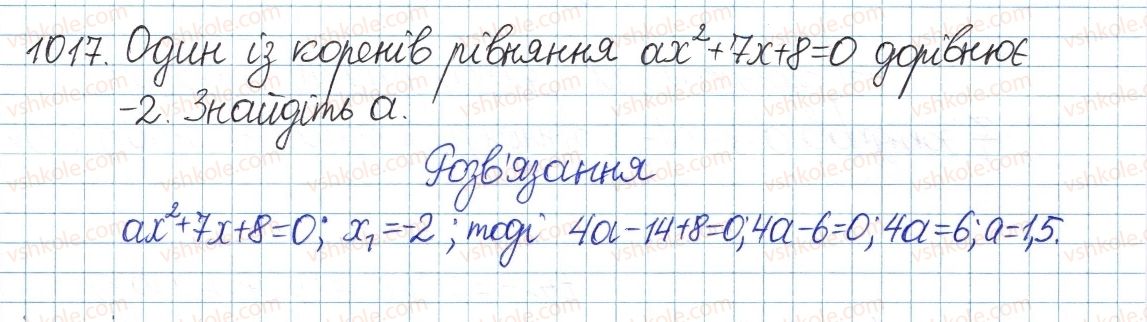 1017. Один із коренів рівняння ax²+7x+8=0 дорівнює
-2. Знайдіть a.
Розв'язання
ax²+7x+8=0; x₁=-2; тоді 4a-14+8=0; 4a-6=0; 4a=6; a=1,5.